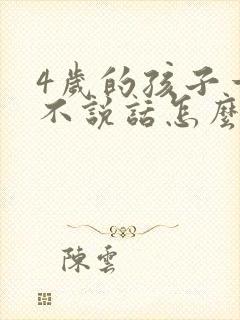 4歲的孩子
不說話怎麼
陳雲